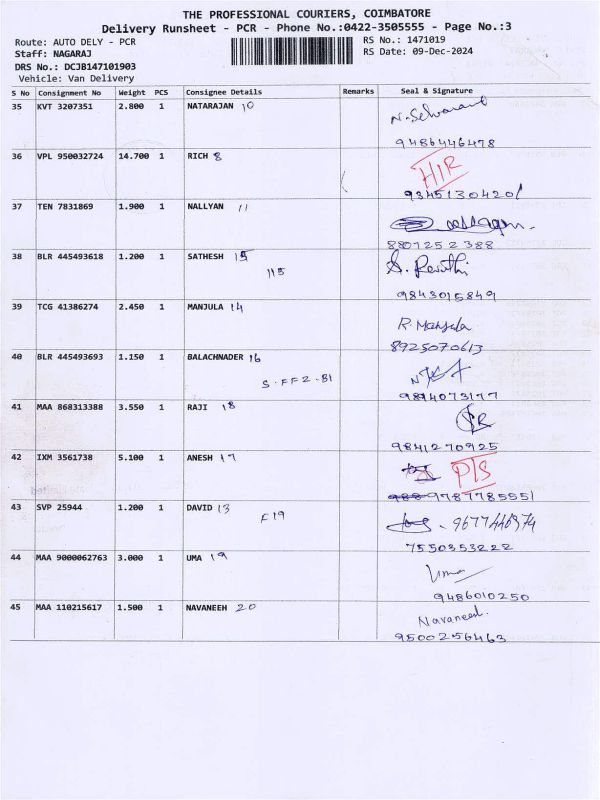 THE PROFESSIONAL COURIERS, COIMBATORE
Delivery Runsheet - PCR - Phone No.:0422-3505555 - Page No.:3
Route: AUTO DELY - PCR RS No.: 1471019
Staff: NAGARAJ RS Date: 09-Dec-2024
DRS No.: DCJB147101903
Vehicle: Van Delivery
S No Consignment No Weight PCS Consignee Details Remarks Seal & Signature
35 KVT 3207351 2.800 1 NATARAJAN 10
9486446478
36 VPL 950032724 14.700 1 RICH 8 HIR
9345130420/
37 TEN 7831869 1.900 1 NALLYAN 11
8807252388
38 BLR 445493618 1.200 1 SATHESH 15 S. Revathi
115
9843015849
39 TCG 41386274 2.450 1 MANJULA 14 R. Manjula
8925070613
40 BLR 445493693 1.150 1 BALACHNADER 16
S-FF2-B1
9814073177
41 MAA 868313388 3.550 1 RAJI 18
9841270925
42 IXM 3561738 5.100 1 ANESH 17 PTS
9787785551
43 SVP 25944 1.200 1 DAVID 13
F19
7550353222
44 MAA 9000062763 3.000 1 UMA 19 Uma
9486010250
45 MAA 110215617 1.500 1 NAVANEEH 20 Navaneed.
9500256463